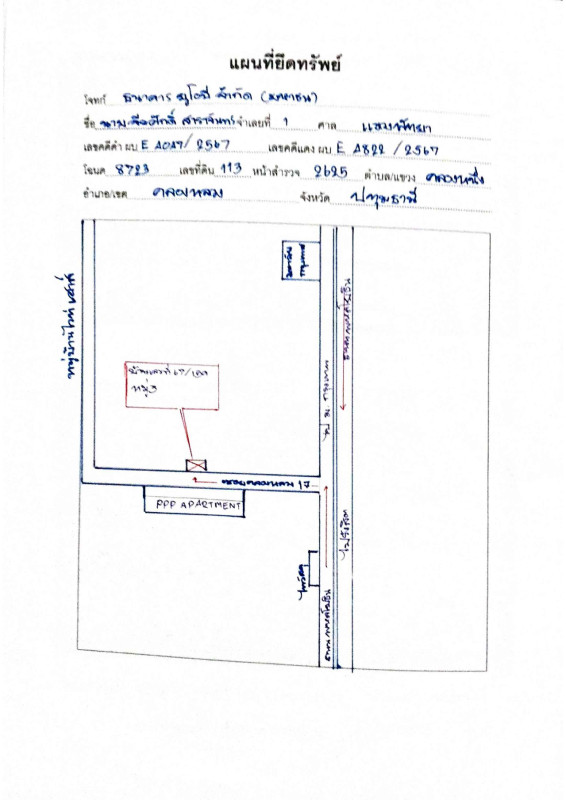 แผนที่ยึดทรัพย์
โจทก์ ธนาคาร ยูโอบี จำกัด (มหาชน)
ชื่อ จำเลยที่ 1 ศาล แขวงพัทยา
เลขคดีดำ ผบ E 2567 เลขคดีแดง ผบ E A822 / 2567
โฉนด 8723 เลขที่ดิน 113 หน้าสำรวจ 2625 ตำบล/แขวง คลองหนึ่ง
อำเภอ/เขต คลองหลวง จังหวัด ปทุมธานี
มหาวิทยาลัยกรุงเทพ
ถนนพหลโยธิน
หมู่ 3
ไป ม. กรุงเทพ
ซอยคลองหลวง 17
PPP APARTMENT
ไปรังสิต
ไทวัสดุ
ถนนพหลโยธิน